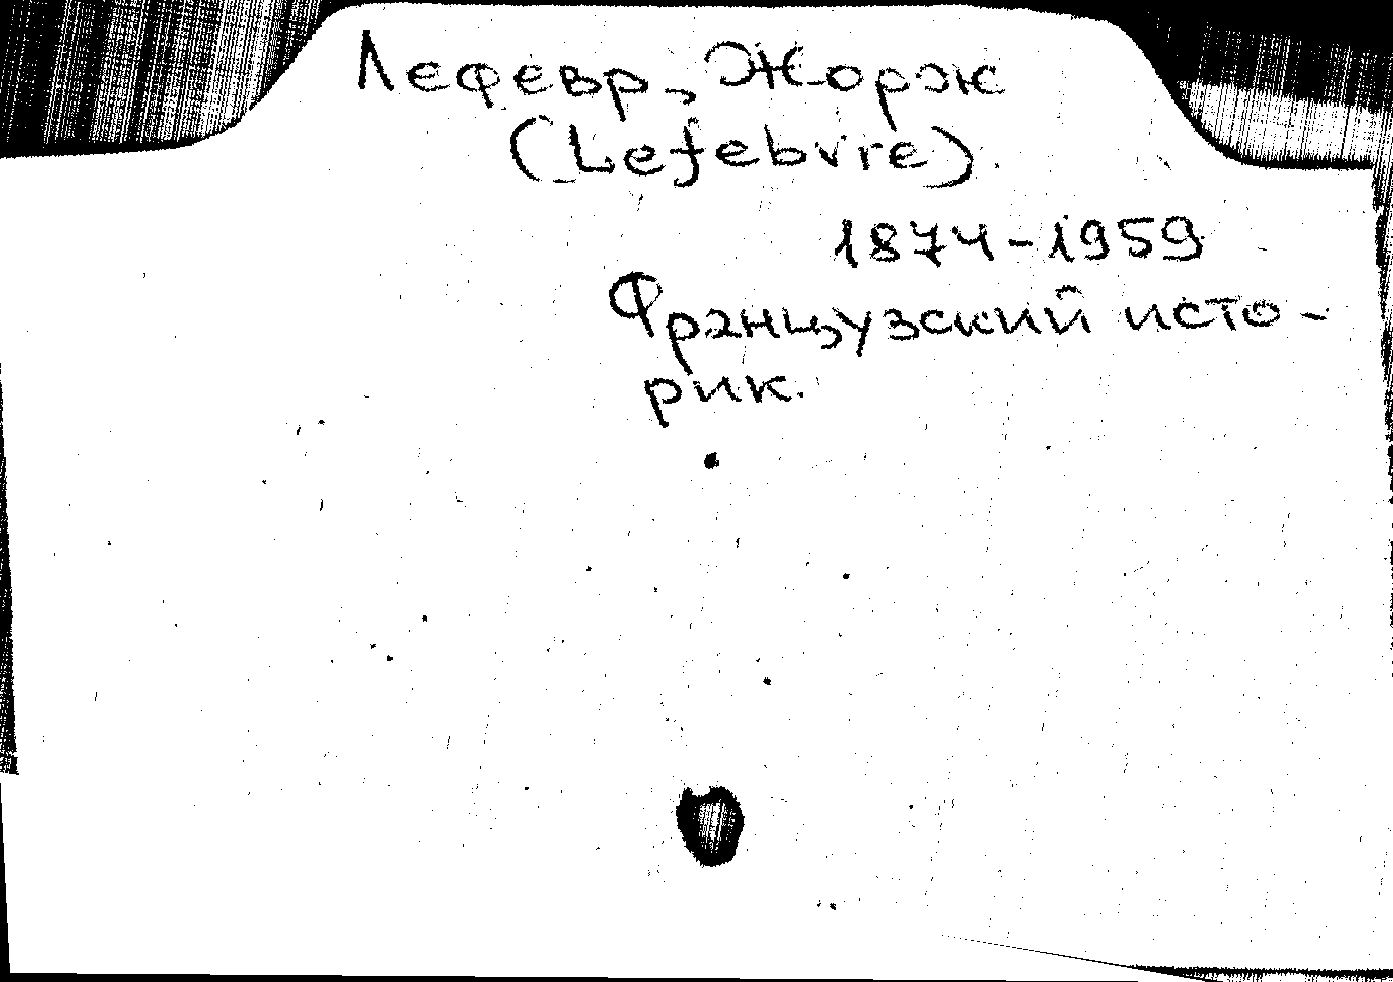 Лефевр, Жорж
(Lefebvre).
1874-1959
Французский исто-
рик.